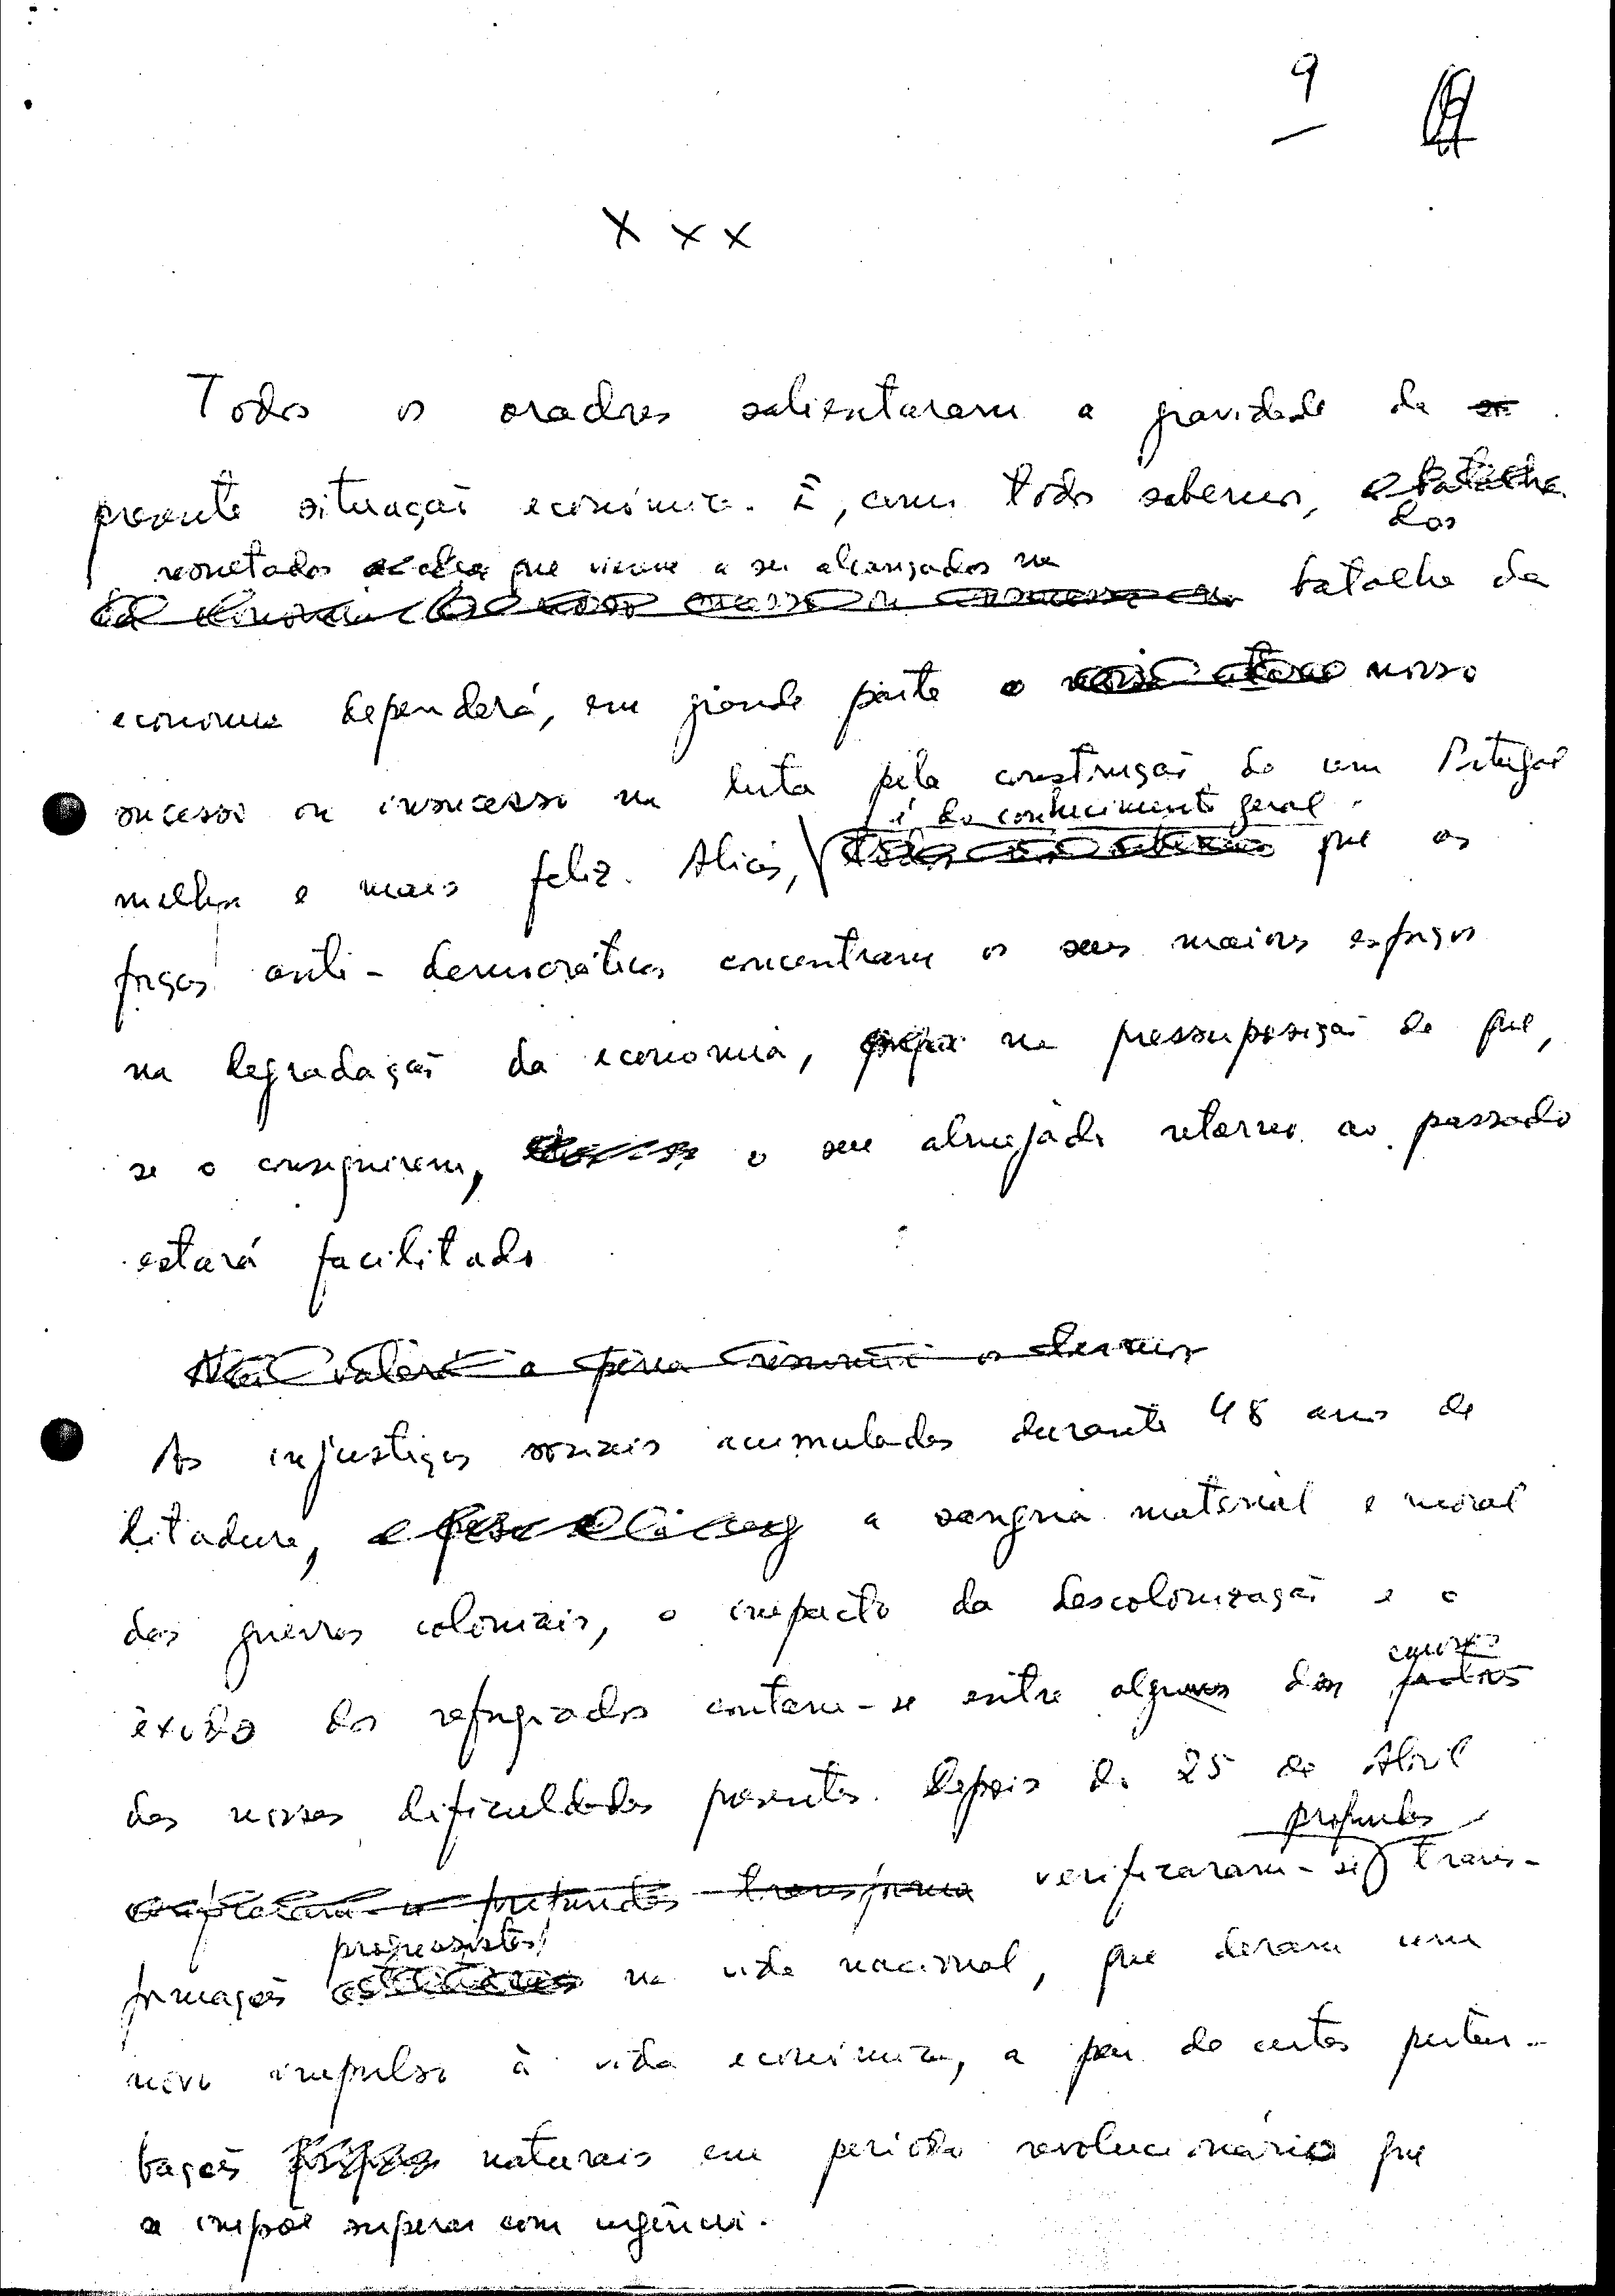 9
x x x
Todos os oradores salientaram a gravidade da
presente situação económica. É, como todos sabemos,
dos
resultados que vierem a ser alcançados na
batalha da
economia dependerá, em grande parte o nosso
sucesso ou insucesso na luta pela construção de um Portugal
é do conhecimento geral
melhor e mais feliz. Aliás, que as
forças anti-democráticas concentram os seus maiores esforços
na degradação da economia, na pressuposição de que,
se o conseguirem, o seu almejado retorno ao passado
estará facilitado
Não valerá a pena resumir os demais
As injustiças sociais acumuladas durante 48 anos de
ditadura, a sangria material e moral
das guerras coloniais, o impacto da descolonização e o
causas
êxodo dos refugiados contam-se entre algumas das factores
das nossas dificuldades presentes. Depois do 25 de Abril
profundas
profundas transforma verificaram-se trans-
progressistas
formações na vida nacional, que deram um
novo impulso à vida económica, a par de certas pertur-
bações naturais em período revolucionário que
se impõe superar com urgência.